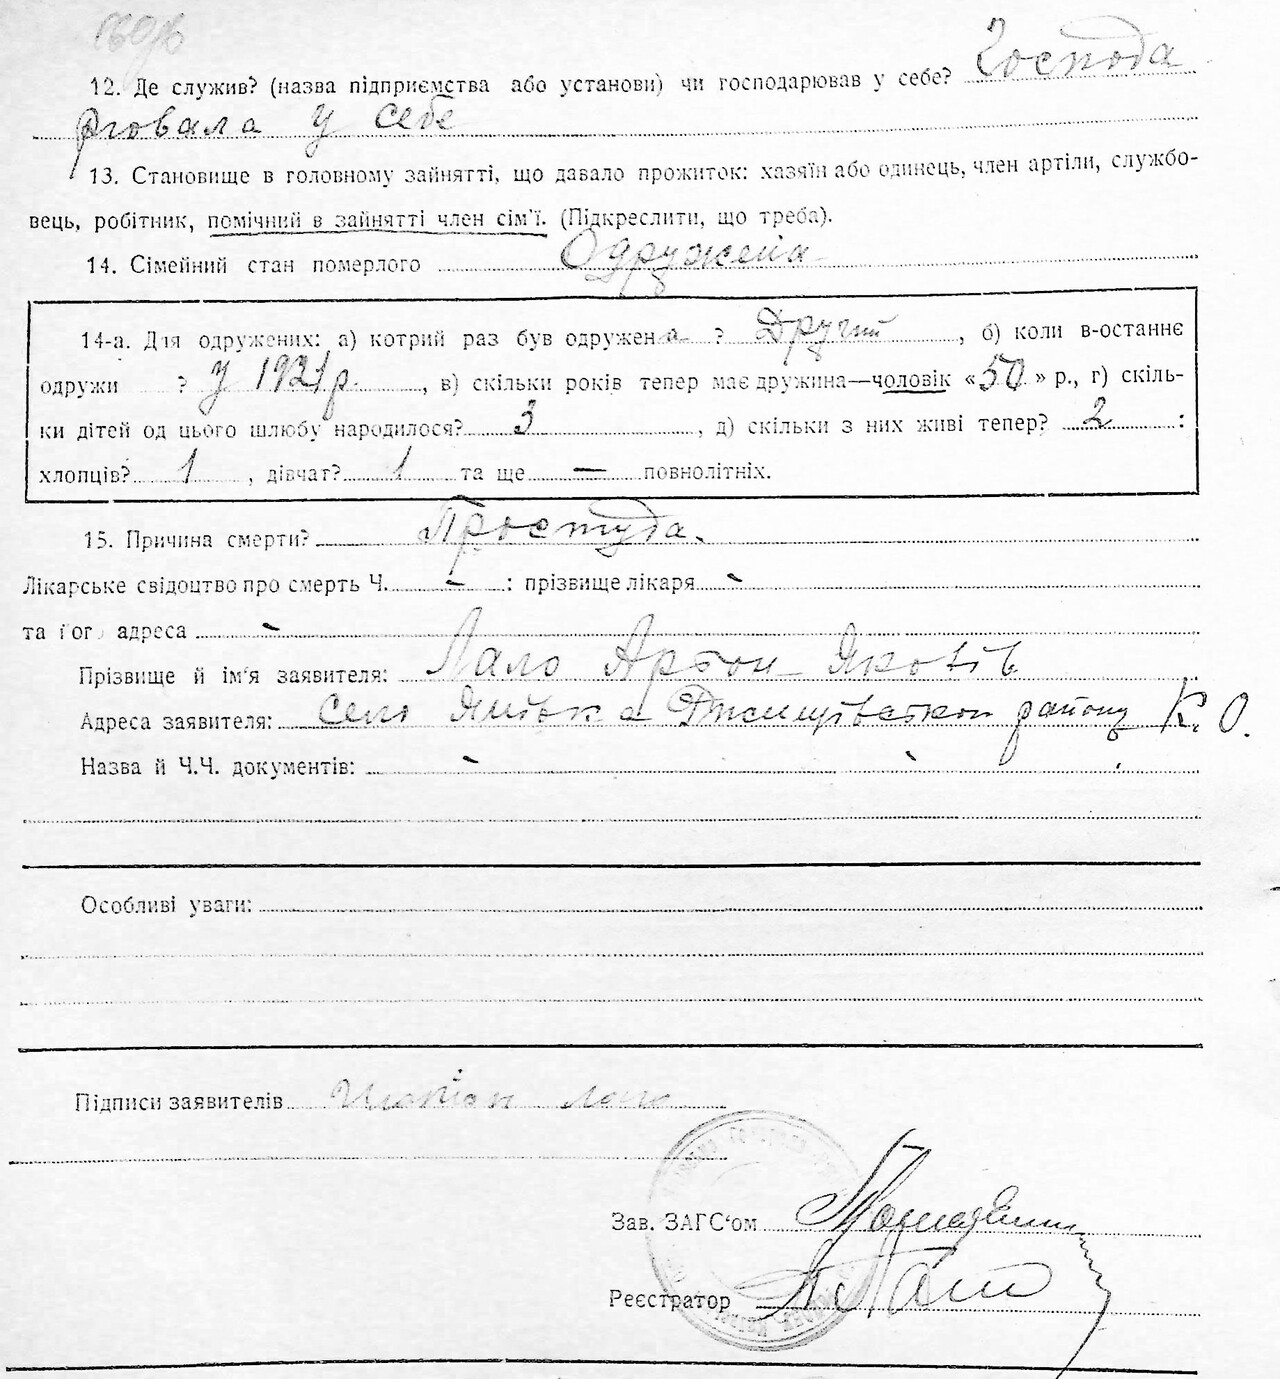 12. Де служив? (назва підприємства або установи) чи господарював у себе? Господа
рювала у себе
13. Становище в головному зайнятті, що давало прожиток: хазяїн або одинець, член артіли, службо-
вець, робітник, помічний в зайнятті член сім'ї. (Підкреслити, що треба).
14. Сімейний стан померлого Одружена
14-а. Для одружених: а) котрий раз був одружена ? Другий, б) коли в-останнє
одружи ? У 1921 р., в) скільки років тепер має дружина—чоловік «50» р., г) скіль-
ки дітей од цього шлюбу народилося? 3, д) скільки з них живі тепер? 2 :
хлопців? 1, дівчат? 1 та ще — повнолітніх.
15. Причина смерти? Простуда.
Лікарське свідоцтво про смерть Ч. - : прізвище лікаря -
та його адреса -
Прізвище й ім'я заявителя: Лало Яковів
Адреса заявителя: село району К. О.
Назва й Ч.Ч. документів: -
Особливі уваги:
Підписи заявителів
Зав. ЗАГС'ом
Реєстратор